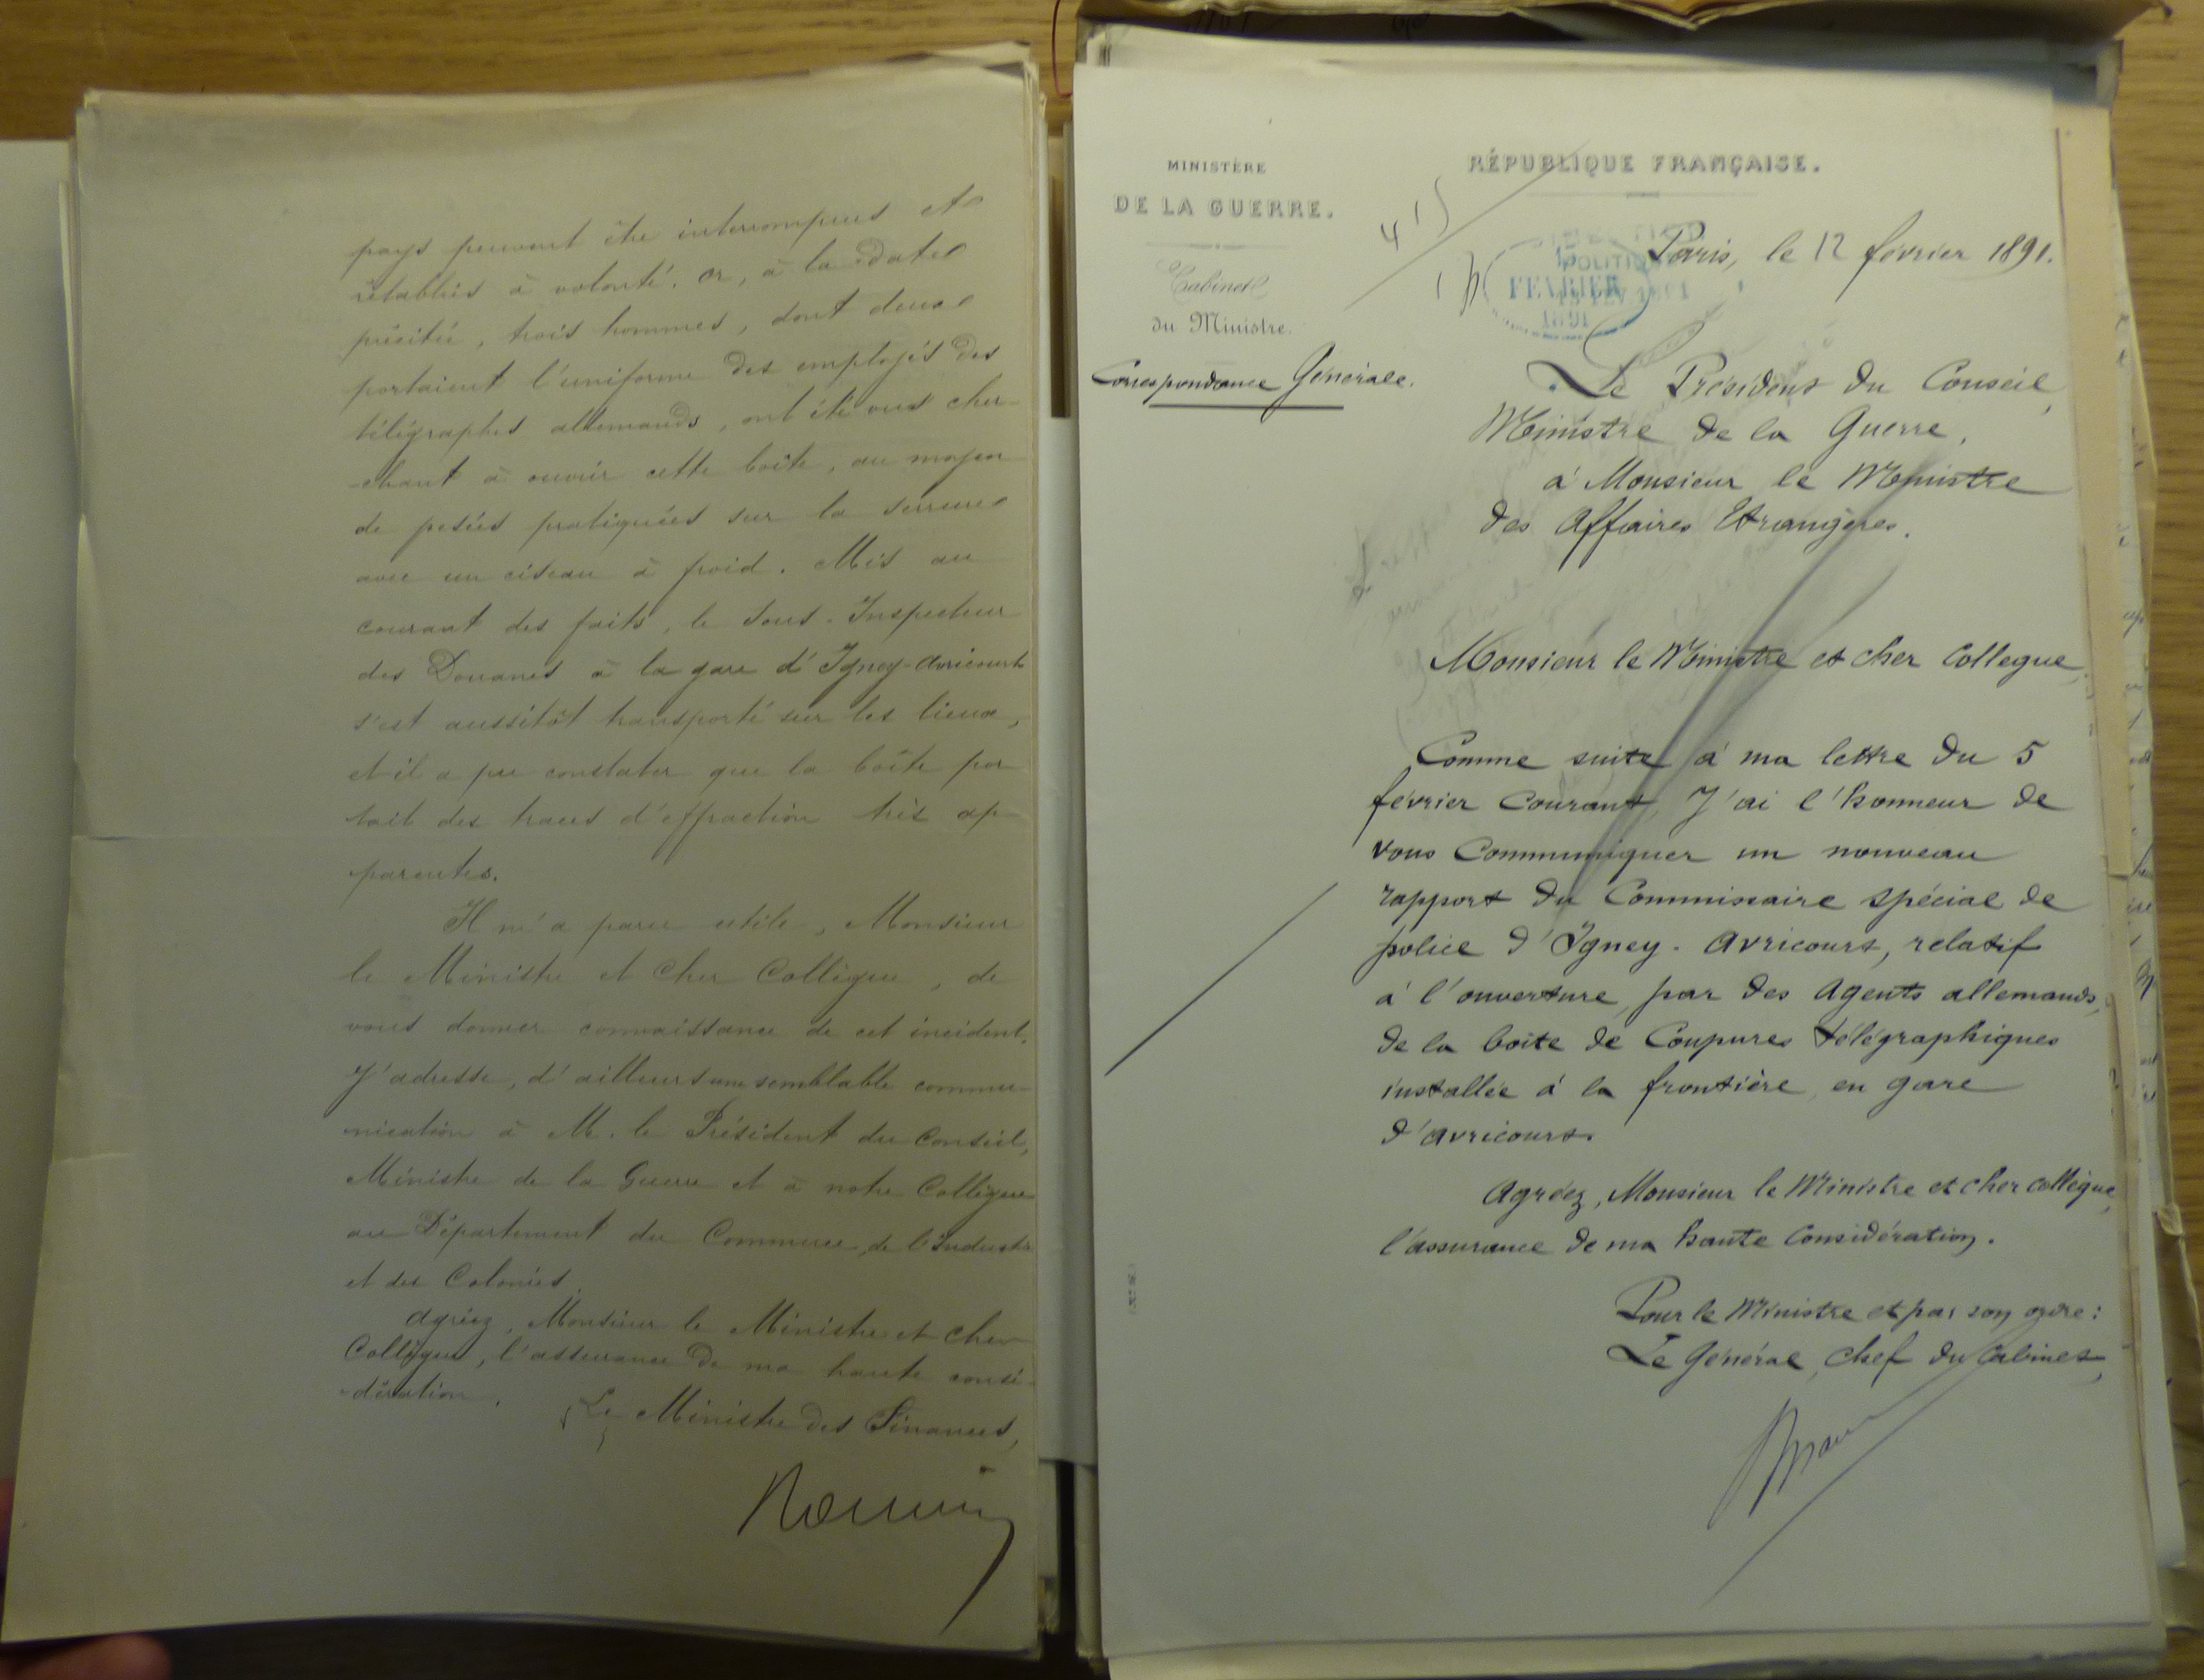 pays peuvent être interrompus et
rétablis à volonté. Or, à la date
précitée, trois hommes, dont deux
portaient l'uniforme des employés des
télégraphes allemands, ont été vus cher-
-chant à ouvrir cette boîte, au moyen
de pesées pratiquées sur la serrure
avec un ciseau à froid. Mis au
courant des faits, le Sous-Inspecteur
des Douanes à la gare d'Igney-Avricourt
s'est aussitôt transporté sur les lieux,
et il a pu constater que la boîte por
tait des traces d'effraction très ap-
parentes.
Il m'a paru utile, Monsieur
le Ministre et Cher Collègue, de
vous donner connaissance de cet incident.
J'adresse, d'ailleurs une semblable commu-
nication à M. le Président du Conseil,
Ministre de la Guerre et à notre Collègue
au Département du Commerce, de l'Industrie
et des Colonies.
Agréez, Monsieur le Ministre et cher
Collègue, l'assurance de ma haute consi-
-dération.
Le Ministre des Finances,
MINISTÈRE
DE LA GUERRE.
Cabinet
du Ministre.
Correspondance Générale.
RÉPUBLIQUE FRANÇAISE.
POLITIQUE
FEVRIER
1891
Paris, le 12 février 1891.
Le Président du Conseil,
Ministre de la Guerre,
à Monsieur le Ministre
des Affaires Etrangères.
Monsieur le Ministre et cher Collegue,
Comme suite à ma lettre du 5
février courant, J'ai l'honneur de
vous Communiquer un nouveau
rapport du Commissaire spécial de
police d'Igney-Avricourt, relatif
à l'ouverture, par des Agents allemands,
de la boîte de Coupures télégraphiques
installée à la frontière, en gare
d'Avricourt.
Agréez, Monsieur le Ministre et cher collègue,
l'assurance de ma haute Considération.
Pour le Ministre et par son ordre:
Le Général, Chef du Cabinet,